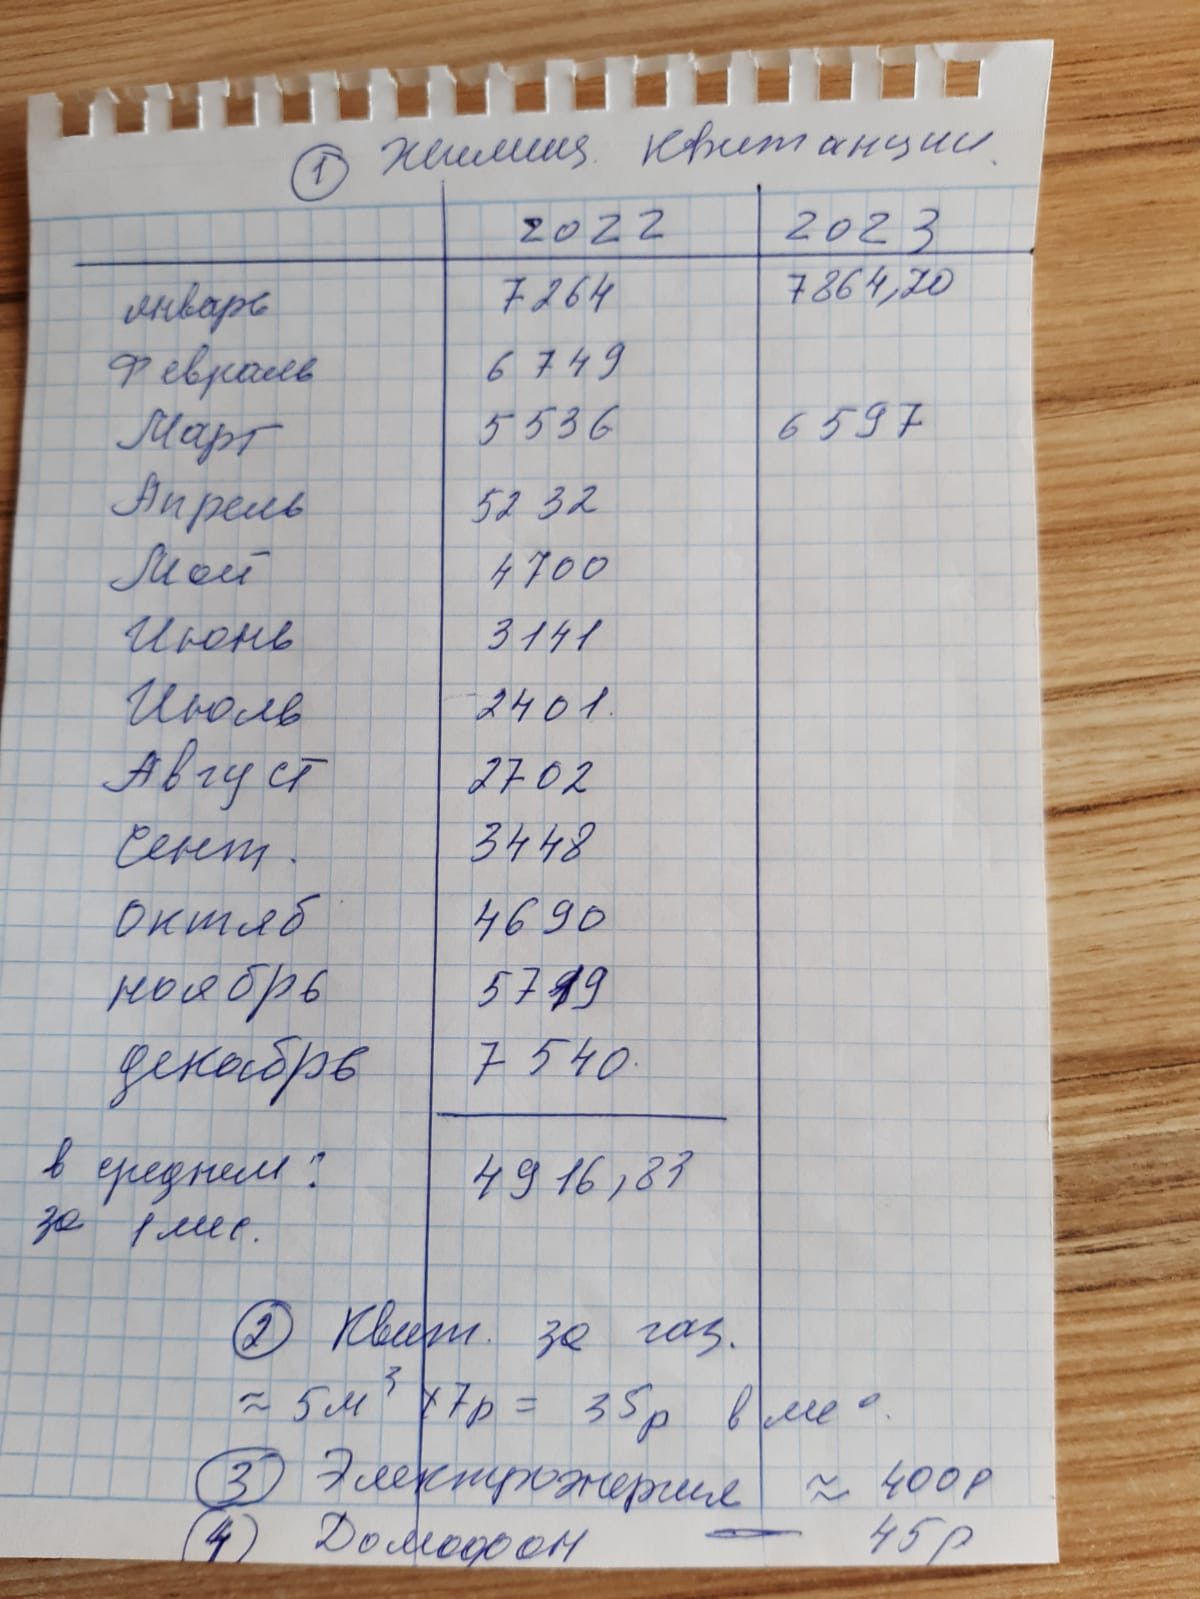 ① Жилищ. квитанции.
2022 2023
январь 7264 7864,20
Февраль 6749
Март 5536 6597
Апрель 5232
Май 4700
Июнь 3141
Июль 2401.
Август 2702
Сент. 3448
октяб 4690
ноябрь 5719
декабрь 7540.
в среднем: 4916,83
за 1 мес.
② Квит. за газ.
≈ 5м³ х7р = 35р в мес.
③ Электроэнергия ≈ 400р
④ Домофон — 45р